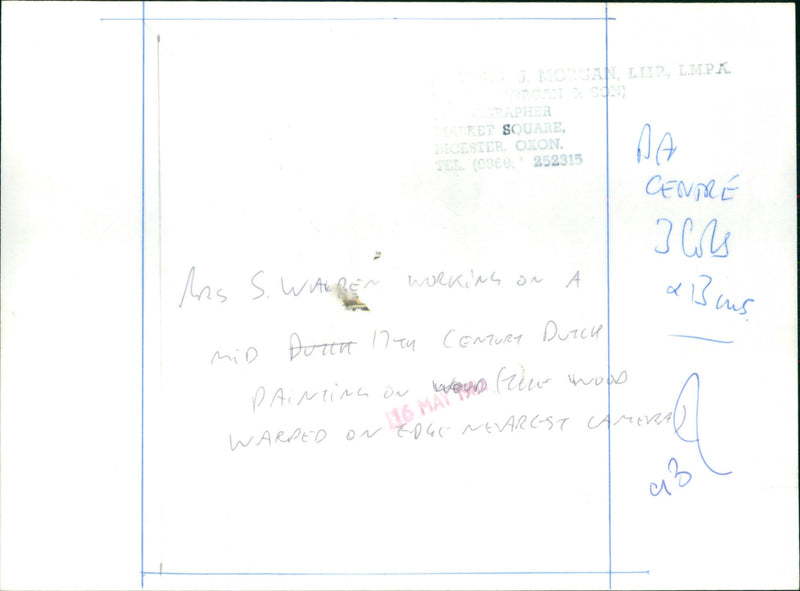 J. MORGAN, LIIP., L.M.P.A.
MORGAN & SON)
OGRAPHER
MARKET SQUARE,
BICESTER, OXON.
TEL. (0869) 252315
CENTRE
3 Cols
MRS S. WARREN WORKING ON A
MID DUTCH 17TH CENTURY DUTCH
PAINTING ON WOOD (THE WOOD
16 MAY
WARPED ON EDGE NEAREST CAMERA)